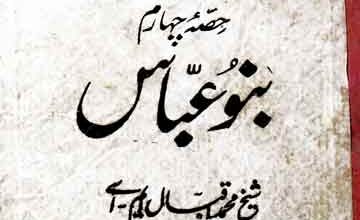 حصۂ چہارم
بنو عبّاس
شیخ محمد اقبال ایم۔ اے